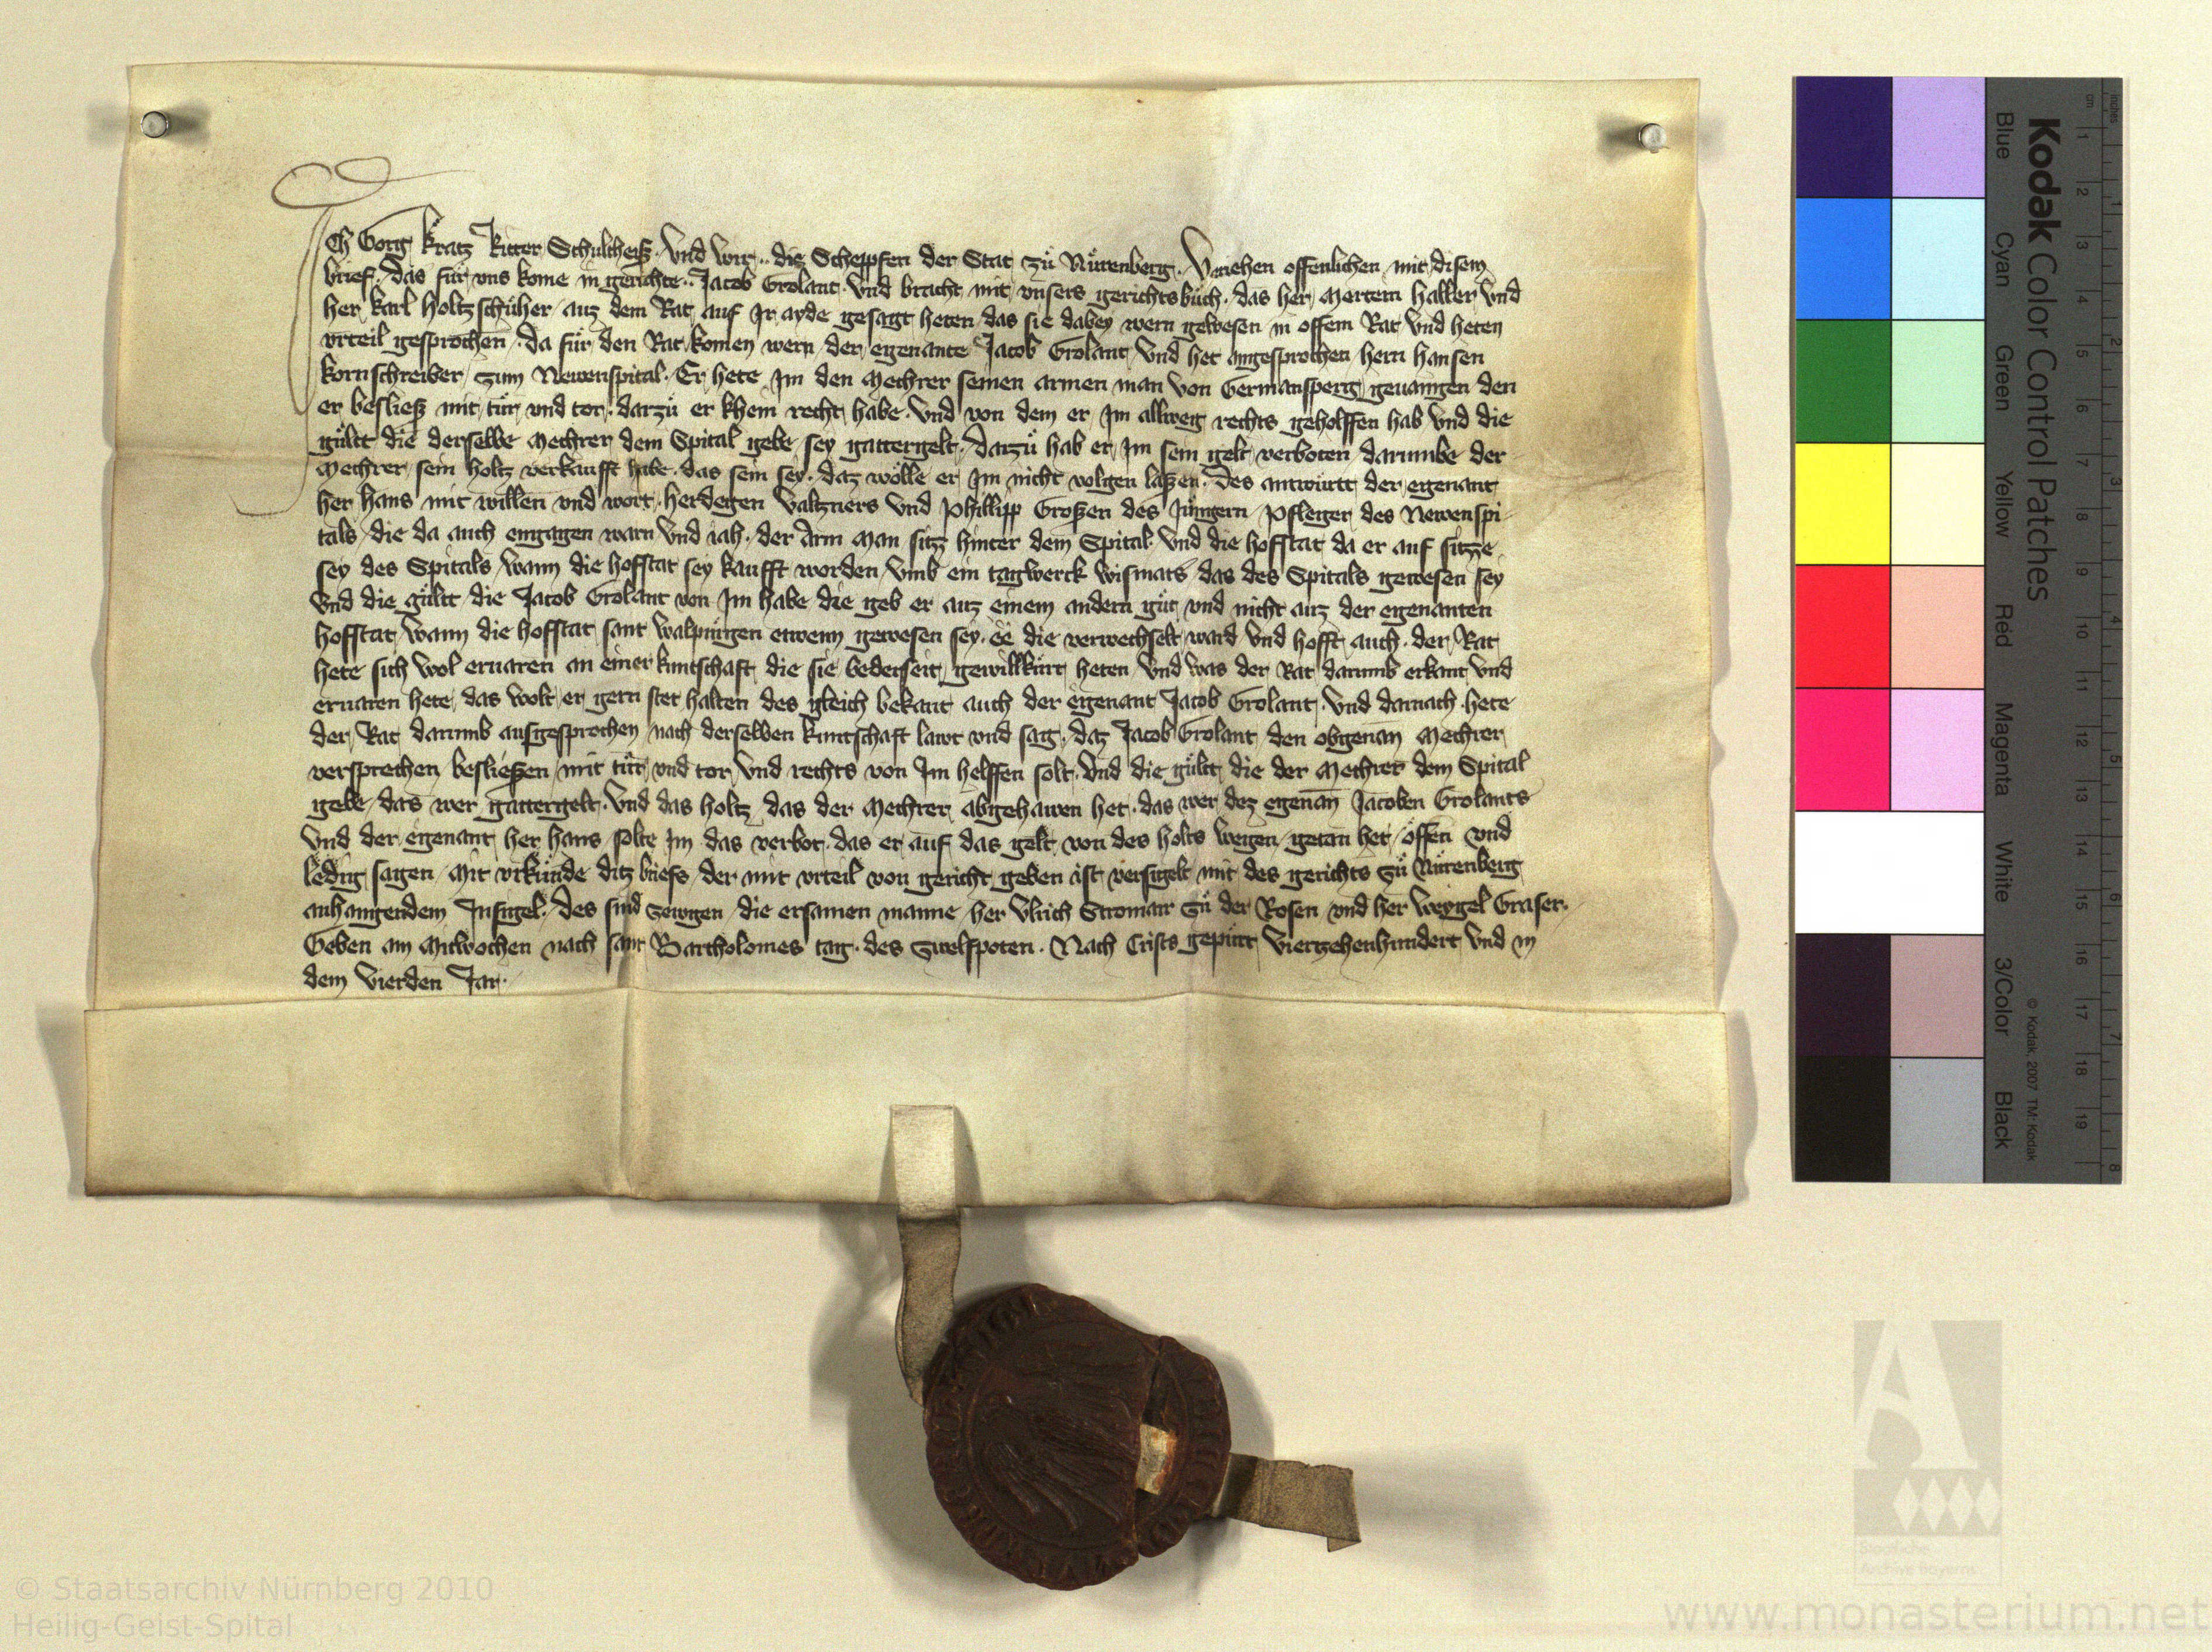 Ich Gorg Kratz Ritter Schultheiß · Vnd wir ·· die Scheppfen der Stat zů Nůremberg · Veriehen offenlichen mit disem
brief · das für vns kome in gerichte ·· Jacob Grolant · Vnd bracht mit vnsers gerichtsbůch · das her Mertein Haller Vnd
her Karl Holtzschůher auz dem Rat auf Jr ayde gesagt heten das sie dabey wern gewesen in offem Rat Vnd heten
vrteil gesprochen / da für den Rat komen wern der egenante Jacob Grolant Vnd het angesprochen hern Hansen
kornschreiber zum Newenspital · Er hete Jm den Mechrer seinen armen man von Germansperg geuangen den
er besließ mit tür vnd tor · darzů er khein recht habe · Vnd von dem er Jm allweg rechts geholffen hab Vnd die
gůltt die derselbe Mechrer dem Spital gebe sey gattergelt · Darzů hab er Jm sein gelt verboten darumbe der
Mechrer sein holtz verkaufft habe · das sein sey · daz wölle er Jm nicht volgen laßen · Des antwürtt der egenant
her Hans mit willen vnd wort · Herdegen Valtzners Vnd Phillipp Großen des Jüngern Pfleger des Newenspi-
tals / die da auch engagen warn Vnd iah · der Arm Man sitz hinter dem Spital · Vnd die hofstat da er auf sitze
sey des Spitals / Wann die hofstat sey kaufft worden / Vmb ein tagwerck wismats das des Spitals gewesen sey
Vnd die gültt die Jacob Grolant von Jm habe die geb er auz einem andern gůt vnd nicht auz der egenanten
hofstat Wann die hofstat sant Walpurgen etwenn gewesen sey · ee die verwechselt ward Vnd hofft auch · der Rat
hete sich wol eruaren an einer kuntschaft die sie bederseit gewillkürt heten Vnd was der Rat darumb erkant Vnd
eruaren hete / das wolt er gern stet halten des gleich bekant auch der egenant Jacob Grolant · Vnd darnach hete
der Rat darumb außgesprochen nach derselben kuntschaft lawt vnd sag · daz Jacob Grolant den obgenan Mechrer
versprechen besließen mit tür vnd tor Vnd rechts von Jm helffen solt · Vnd die gültt die der Mechrer dem Spital
gebe / das wer gattergelt · Vnd das holtz das der Mechrer abgehawen het · das wer dez egenan Jacoben Grolants
Vnd der egenant her Hans solte Jm das verbot · das er auf das gelt von des holts wegen getan het / offen vnd
ledig sagen / Mit vrkünde ditz briefs der mit vrteil von gericht geben ist versigelt mit des gerichts zů Nůremberg
anhangendem Jnsigel · Des sind zewgen die ersamen manne her Vlrich Stromair zů der Rosen vnd her Weygel Graser ·
Geben am Mitwochen nach sant Bartholomes tag · des zwelfpoten · Nach Crists gepürt Viertzehenhundert Vnd in
dem Vierden Jar ·
Kodak Color Control Patches
Blue Cyan Green Yellow Red Magenta White 3/Color Black
cm 1 2 3 4 5 6 7 8 9 10 11 12 13 14 15 16 17 18 19
inches 1 2 3 4 5 6 7 8
© Kodak, 2007 TM: Kodak
Staatliche
Archive Bayerns
© Staatsarchiv Nürnberg 2010
Heilig-Geist-Spital
www.monasterium.net